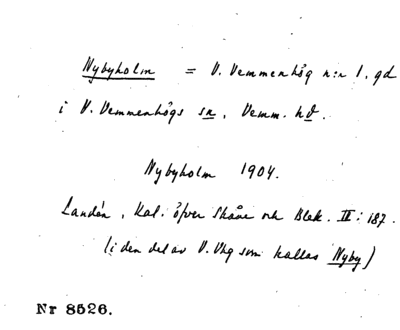 Nybyholm = V. Vemmenhög n:r 1, gd
i V. Vemmenhögs sn, Vemm. hd.
Nybyholm 1904.
Landén, Kal. öfver Skåne och Blek. II: 187.
(i den del av V. Vhg som kallas Nyby)
Nr 8526.